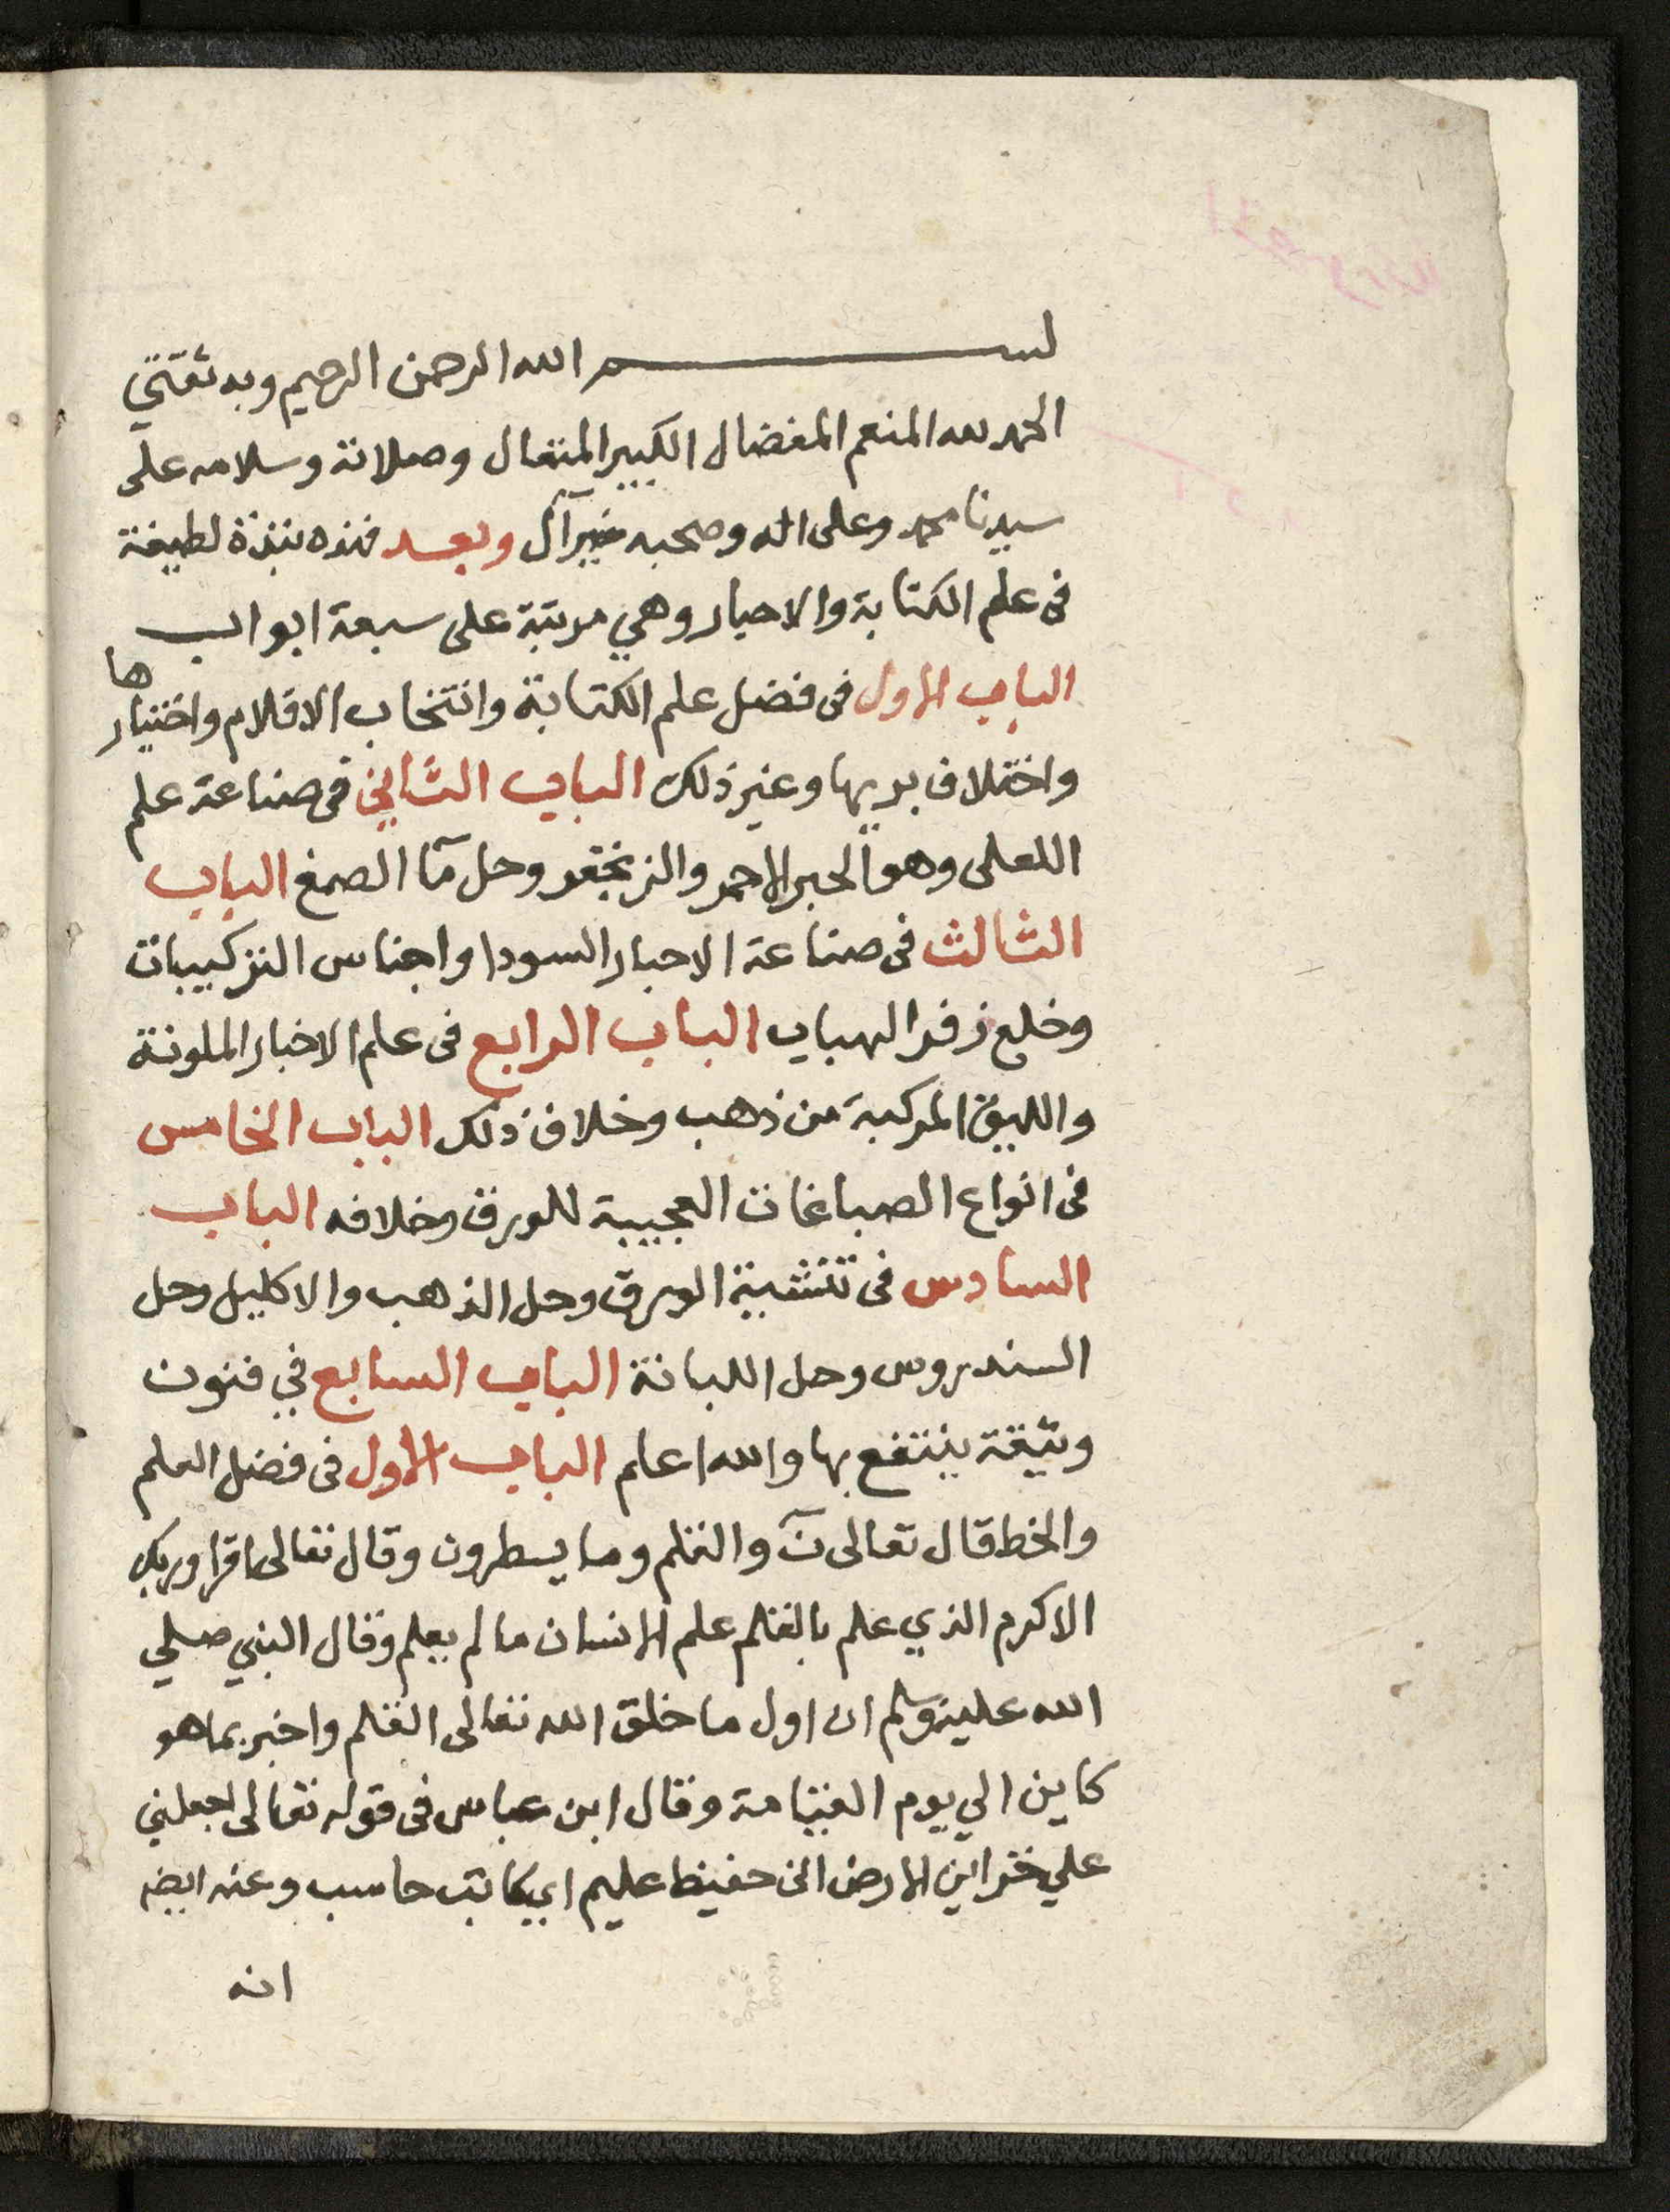 بسم الله الرحمن الرحيم وبه ثقتي
الحمد لله المنعم المفضال الكبير المتعال وصلاته وسلامه على
سيدنا محمد وعلى اله وصحبه خير آل وبعد فهذه نبذة لطيفة
في علم الكتابة والاحبار وهي مرتبة على سبعة ابواب
الباب الاول في فضل علم الكتابة وانتخاب الاقلام واختيارها
واختلاف بريها وغير ذلك الباب الثاني في صناعة علم
اللعلى وهو الحبر الاحمر والزنجفر وحل مآ الصمغ الباب
الثالث في صناعة الاحبار السودا واجناس التركيبات
وخلع زفر الهباب الباب الرابع في علم الاخبار الملونة
والليق المركبة من ذهب وخلاف ذلك الباب الخامس
في انواع الصباغات العجيبة للورق وخلافه الباب
السادس في تنشية الورق وحل الذهب والاكليل وحل
السندروس وحل اللبانة الباب السابع في فنون
وثيقة ينتفع بها والله اعلم الباب الاول في فضل العلم
والخط قال تعالى نٓ والقلم وما يسطرون وقال تعالى اقرا وربك
الاكرم الذي علم بالقلم علم الانسان ما لم يعلم وقال النبي صلي
الله عليه وسلم ان اول ما خلق الله تعالى القلم واخبر بما هو
كاين الي يوم القيامة وقال ابن عباس في قوله تعالى اجعلني
علي خزاين الارض اني حفيظ عليم اي كاتب حاسب وعنه ايضه
انه